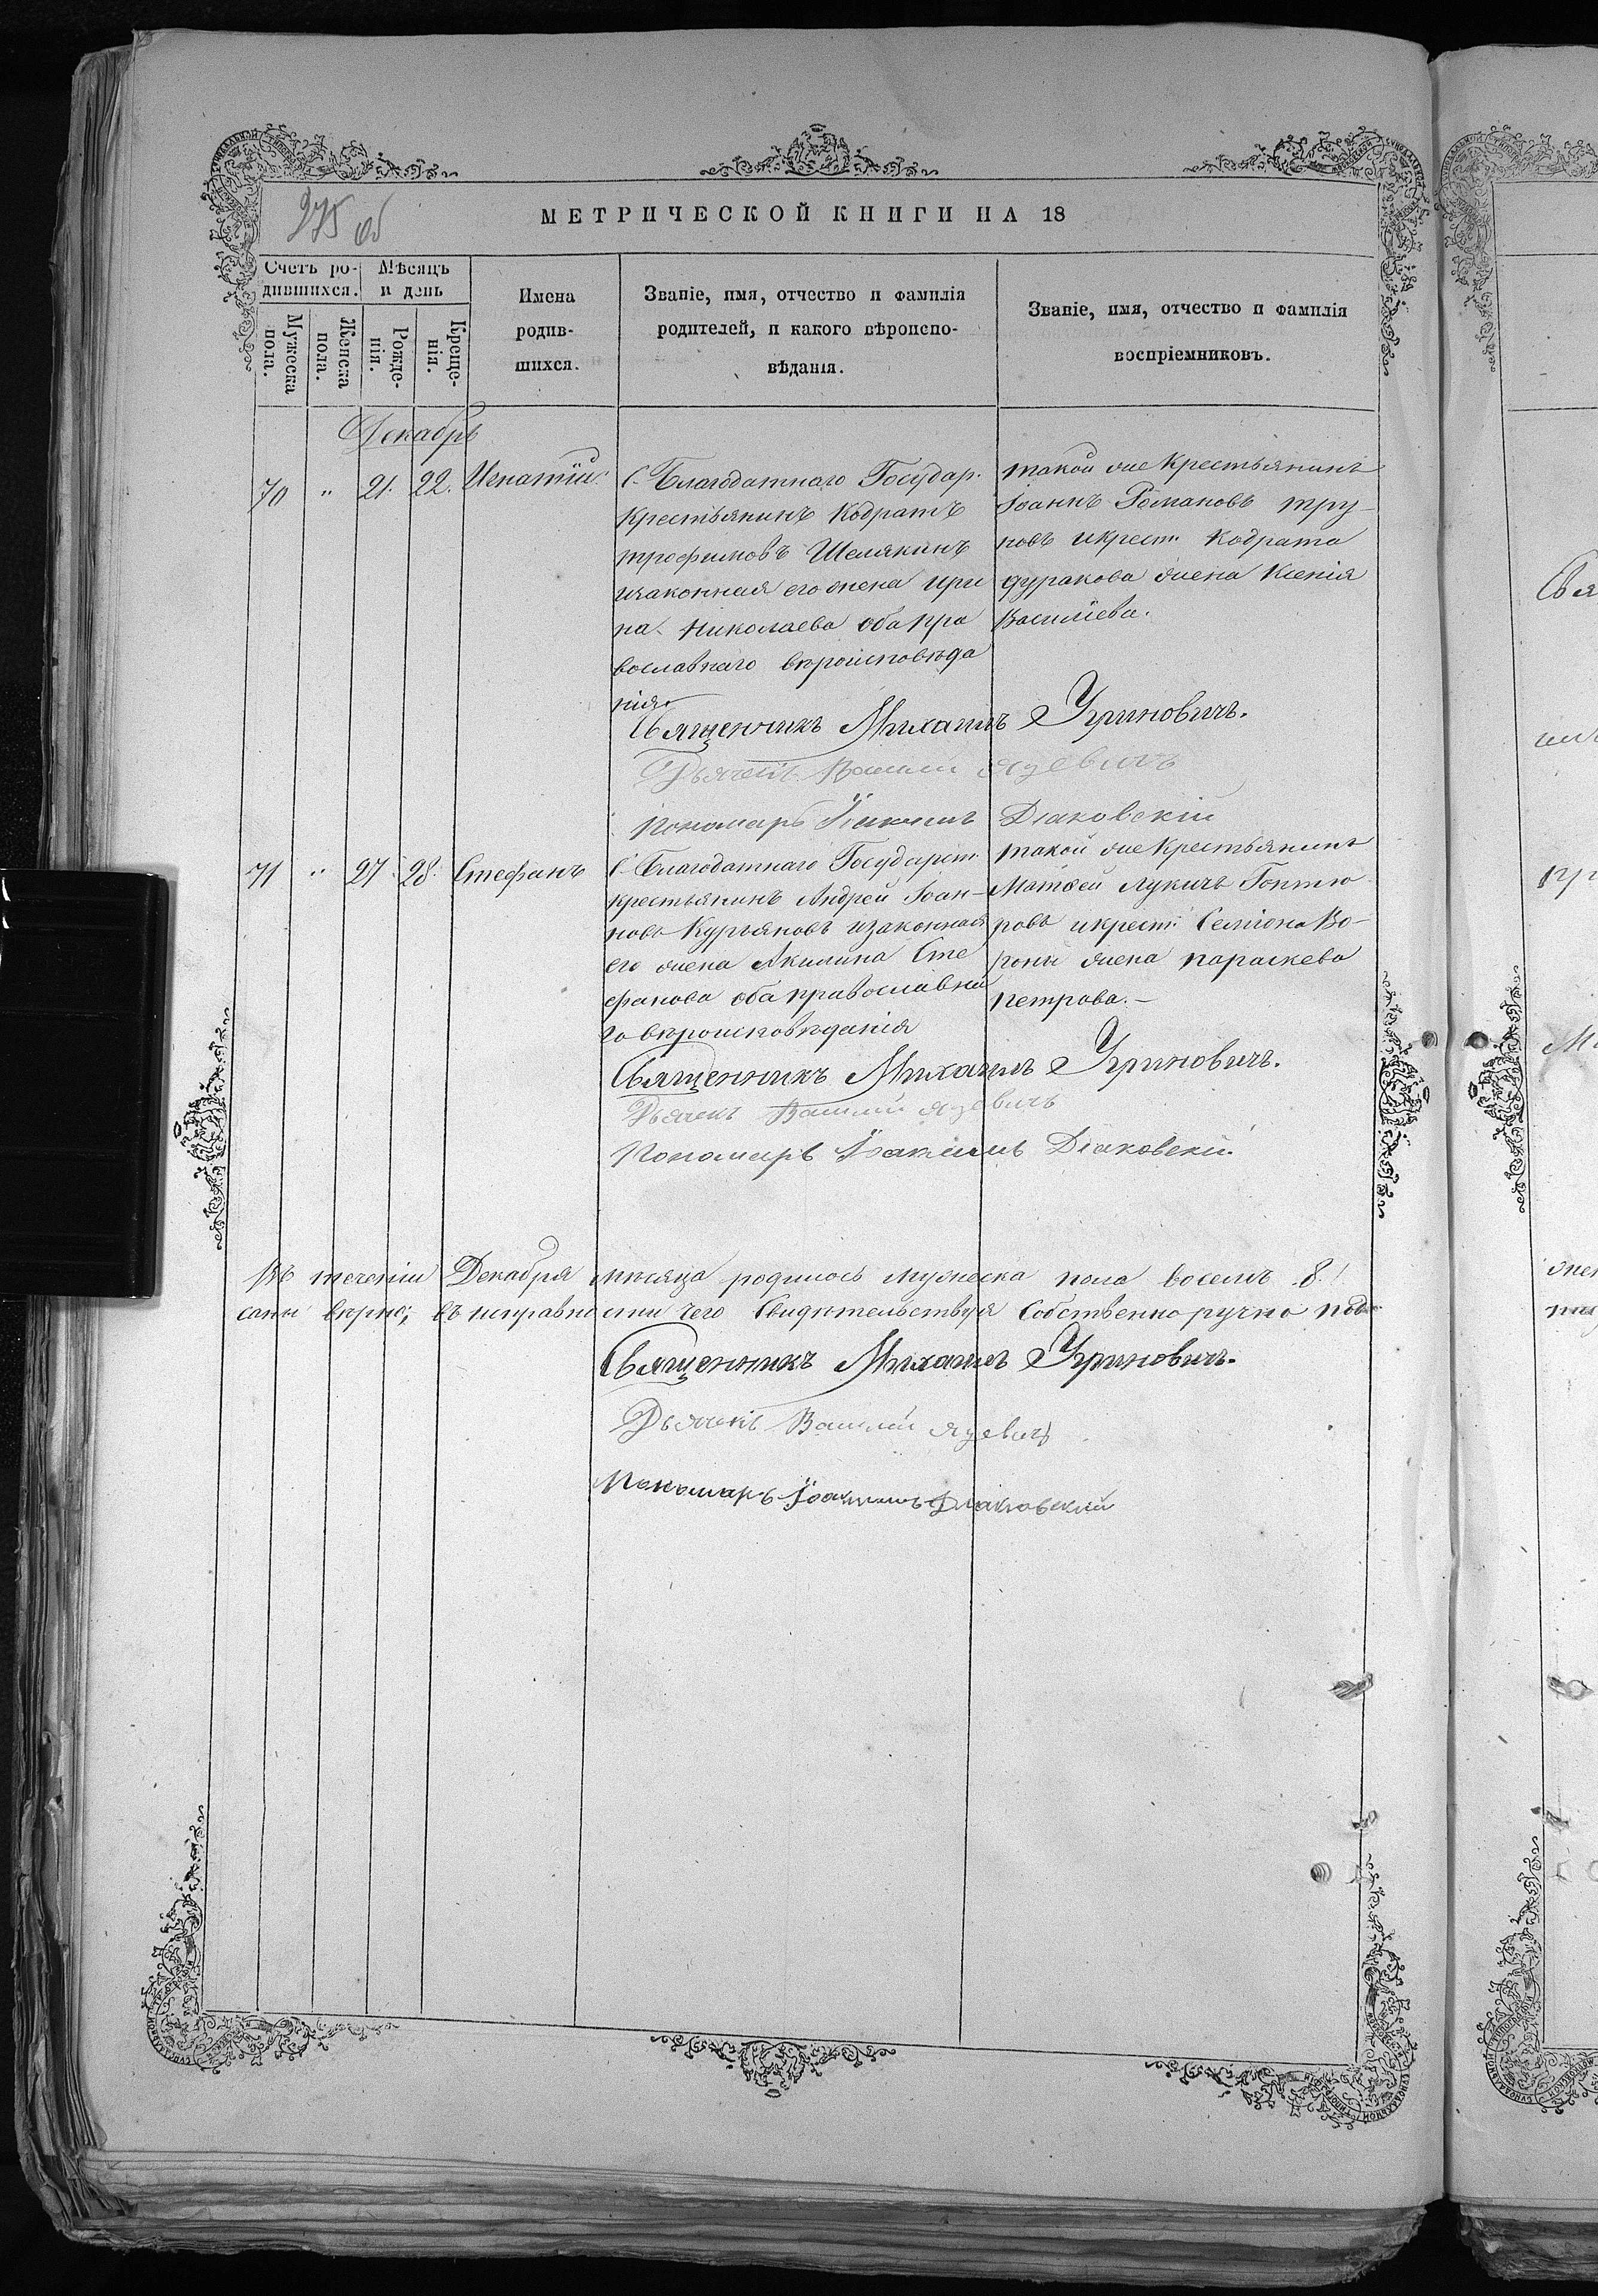 275 об
МЕТРИЧЕСКОЙ КНИГИ НА 18
Счетъ ро-
дившихся.
Мужеска
пола.
Женска
пола.
Мѣсяцъ
и день
Рожде-
нія.
Креще-
нія.
Имена
родив-
шихся.
Званіе, имя, отчество и фамилія
родителей, и какого вѣроиспо-
вѣданія.
Званіе, имя, отчество и фамилія
воспріемниковъ.
Декабрь
70 " 21. 22. Игнатій
С. Благодатнаго Государ.
крестьянинъ Кодратъ
трофимовъ Шелякинъ
изаконная его жена ири
на Николаева оба пра
вославнаго вѣроисповѣда
нія
такой же крестьянинъ
Іоаннъ Романовъ тру-
новъ икрест. Кодрата
дуракова жена Ксенія
Василіева.
Священникъ Михаилъ Угриновичъ.
Дьячекъ Василій Язевичъ
Пономарь Іоакимъ Діаковскій
71 " 27. 28. Стефанъ
С. Благодатнаго Государст.
крестьянинъ Андрей Іоан-
новъ Курьяновъ изаконная
его жена Акилина Сте
фанова оба православна
го вѣроисповѣданія
такой же крестьянинъ
Матѳей Лукичъ
ровъ икрест. Семіона Во-
роны жена параскева
петрова.-
Священникъ Михаилъ Угриновичъ.
Дьячекъ Василій Язевичъ
Пономарь Іоакимъ Діаковскій
Въ теченіи Декабря мѣсяца родилось мужеска пола восемь 8.
саны вѣрно; въ исправности чего Свидѣтельствуя Собственно ручно подпи
Священникъ Михаилъ Угриновичъ.
Дьячекъ Василій Язевичъ
Пономарь Іоакимъ Діаковскій